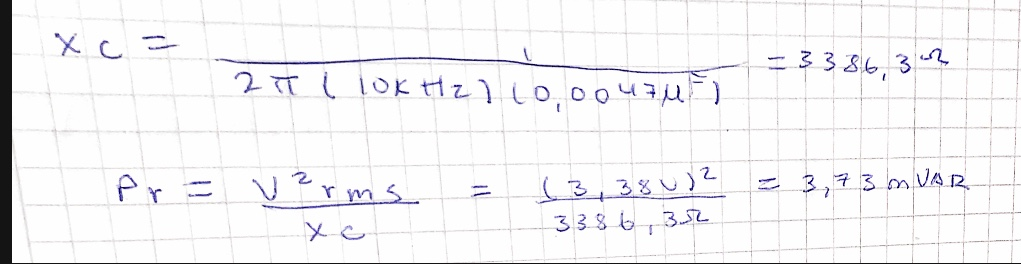 xc = 1 / 2π (10KHz) (0,0047μF) = 3386,3Ω
Pr = V²rms / xc = (3,38V)² / 3386,3Ω = 3,73 mVAR